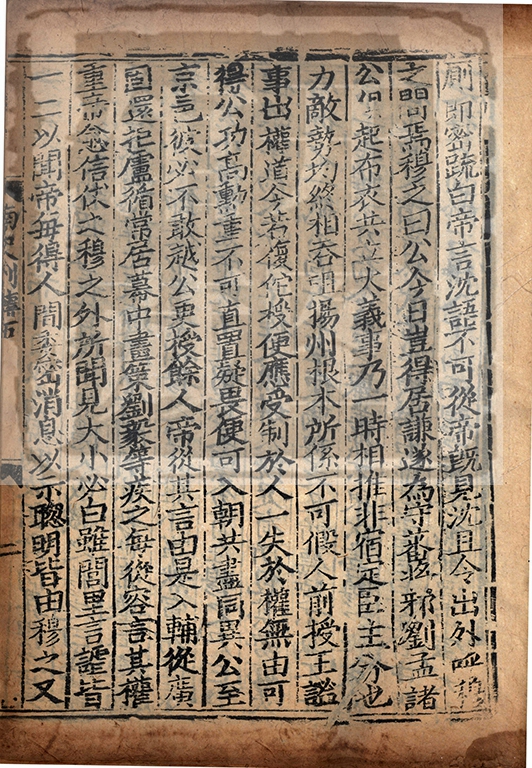 厠即密疏白帝言沈語不可從帝既見沈且令出外呼穆
之問焉穆之曰公今日豈得居謙遂為守蕃將邪劉孟諸
公俱起布衣共立大義事乃一時相推非宿定臣主分也
力敵勢均終相吞咀揚州根本所係不可假人前授王謐
事出權道今若復佗授便應受制於人一失於權無由可
得公功高勳重不可直置疑畏便可入朝共盡同異公至
京邑彼必不敢越公更授餘人帝從其言由是入輔從廣
固還拒盧循常居幕中畫策劉毅等疾之每從容言其權
重帝愈信仗之穆之外所聞見大小必白雖閭里言謔皆
一二以聞帝每得人間委密消息以示聦明皆由穆之又
南史列傳五
二